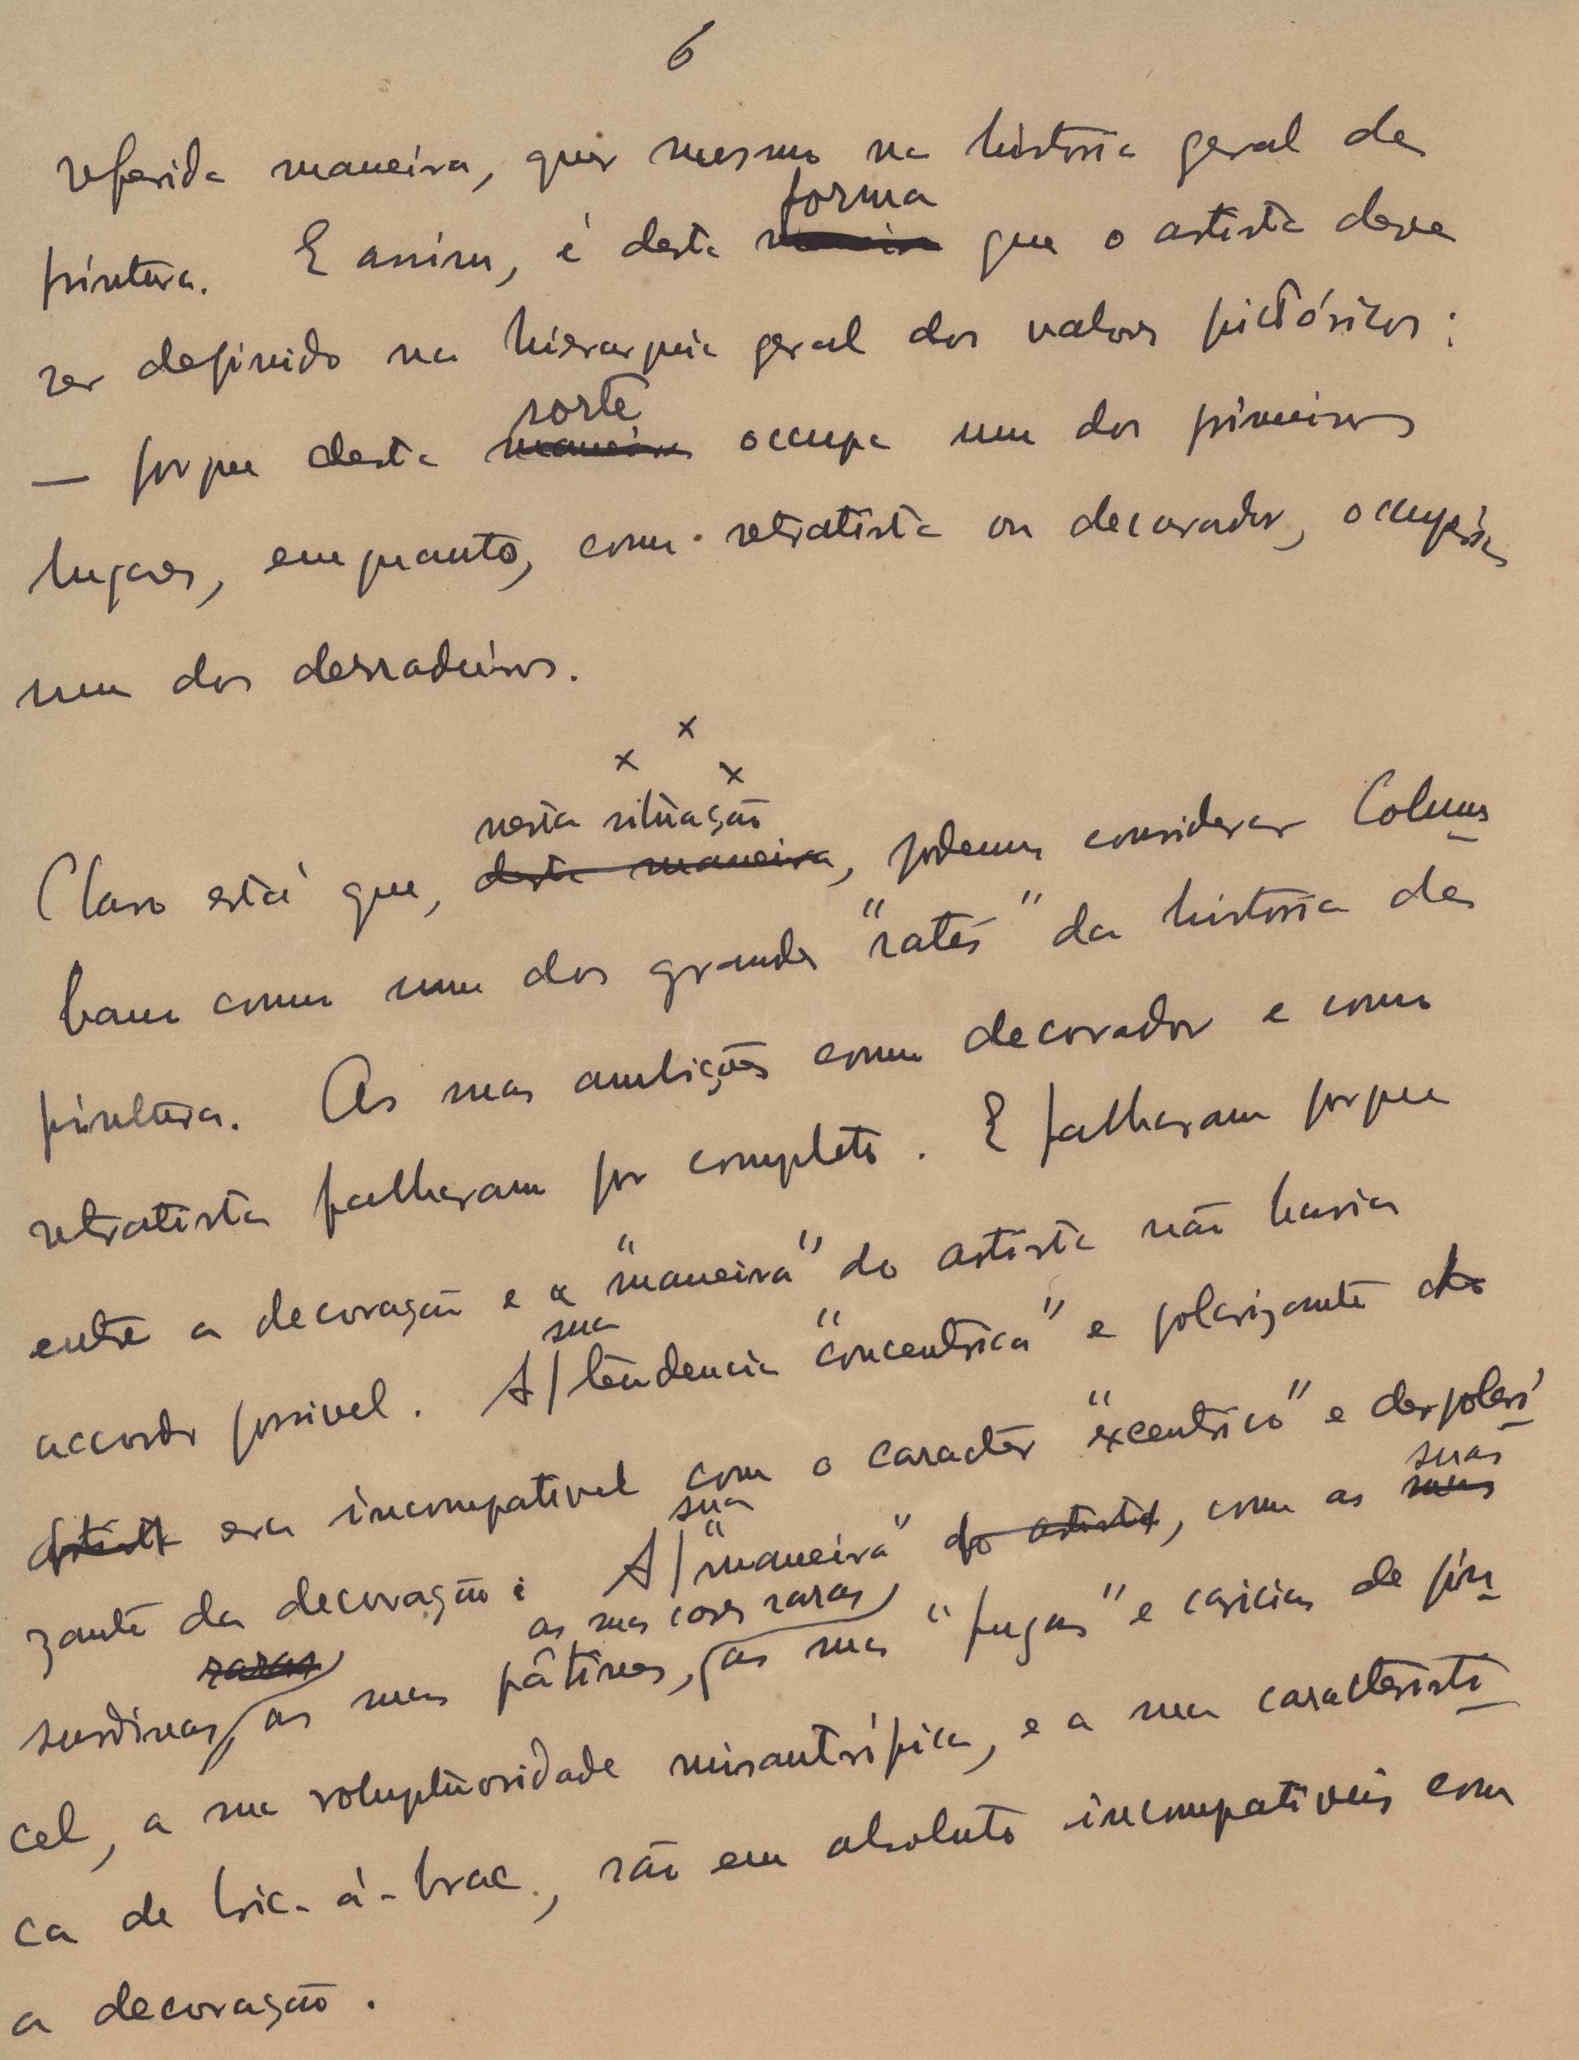 6
referida maneira, quer mesmo na historia geral da
forma
pintura. E assim, é desta maneira que o artista deve
ser definido na hierarquia geral dos valores pictóricos:
sorte
— porque desta maneira occupa um dos primeiros
lugares, emquanto, como retratista ou decorador, occupára
um dos derradeiros.
x x x
nesta situação
Claro está que, desta maneira, podemos considerar Colum
bano como um dos grandes "ratés" da historia da
pintura. As suas ambições como decorador e como
retratista falharam por completo. E falharam porque
entre a decoração e a "maneira" do artista não havia
sua
accordo possivel. A/ tendencia "concentrica" e polarizante do
artista era incompativel com o caracter "excentrico" e despolari
sua suas
zante da decoração: A/ "maneira" do artista, com as suas
raras as suas cores raras
surdinas, as suas pâtines, as suas "fugas" e caricias de pin
cel, a sua voluptuosidade misantrópica, e a sua caracteristi
ca de bric-à-brac, são em absoluto incompativeis com
a decoração.